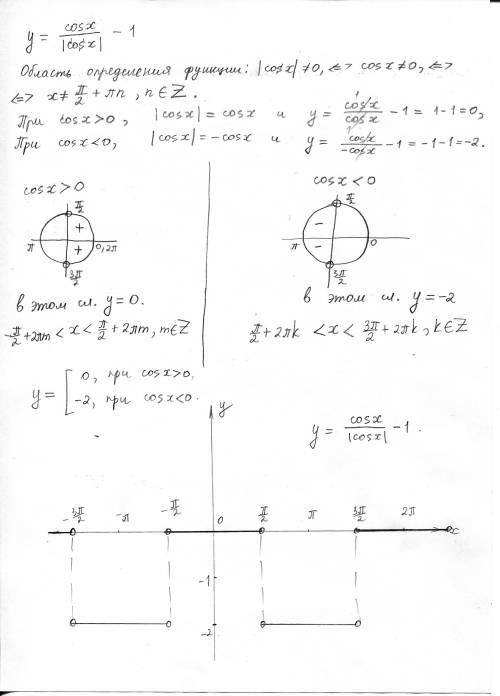 y = cosx / |cosx| − 1
Область определения функции: |cosx| ≠ 0, <=> cosx ≠ 0, <=>
<=> x ≠ π/2 + πn, n∈Z.
При cosx > 0, |cosx| = cosx и y = cosx / cosx − 1 = 1 − 1 = 0,
При cosx < 0, |cosx| = −cosx и y = cosx / −cosx − 1 = −1 − 1 = −2.
cosx > 0
π/2
+
π 0, 2π
+
3π/2
в этом сл. y = 0.
−π/2 + 2πm < x < π/2 + 2πm, m∈Z
cosx < 0
π/2
−
π 0
−
3π/2
в этом сл. y = −2
π/2 + 2πk < x < 3π/2 + 2πk, k∈Z
y = [ 0, при cosx > 0,
−2, при cosx < 0.
y
y = cosx / |cosx| − 1.
−3π/2 −π −π/2 0 π/2 π 3π/2 2π
x
−1
−2